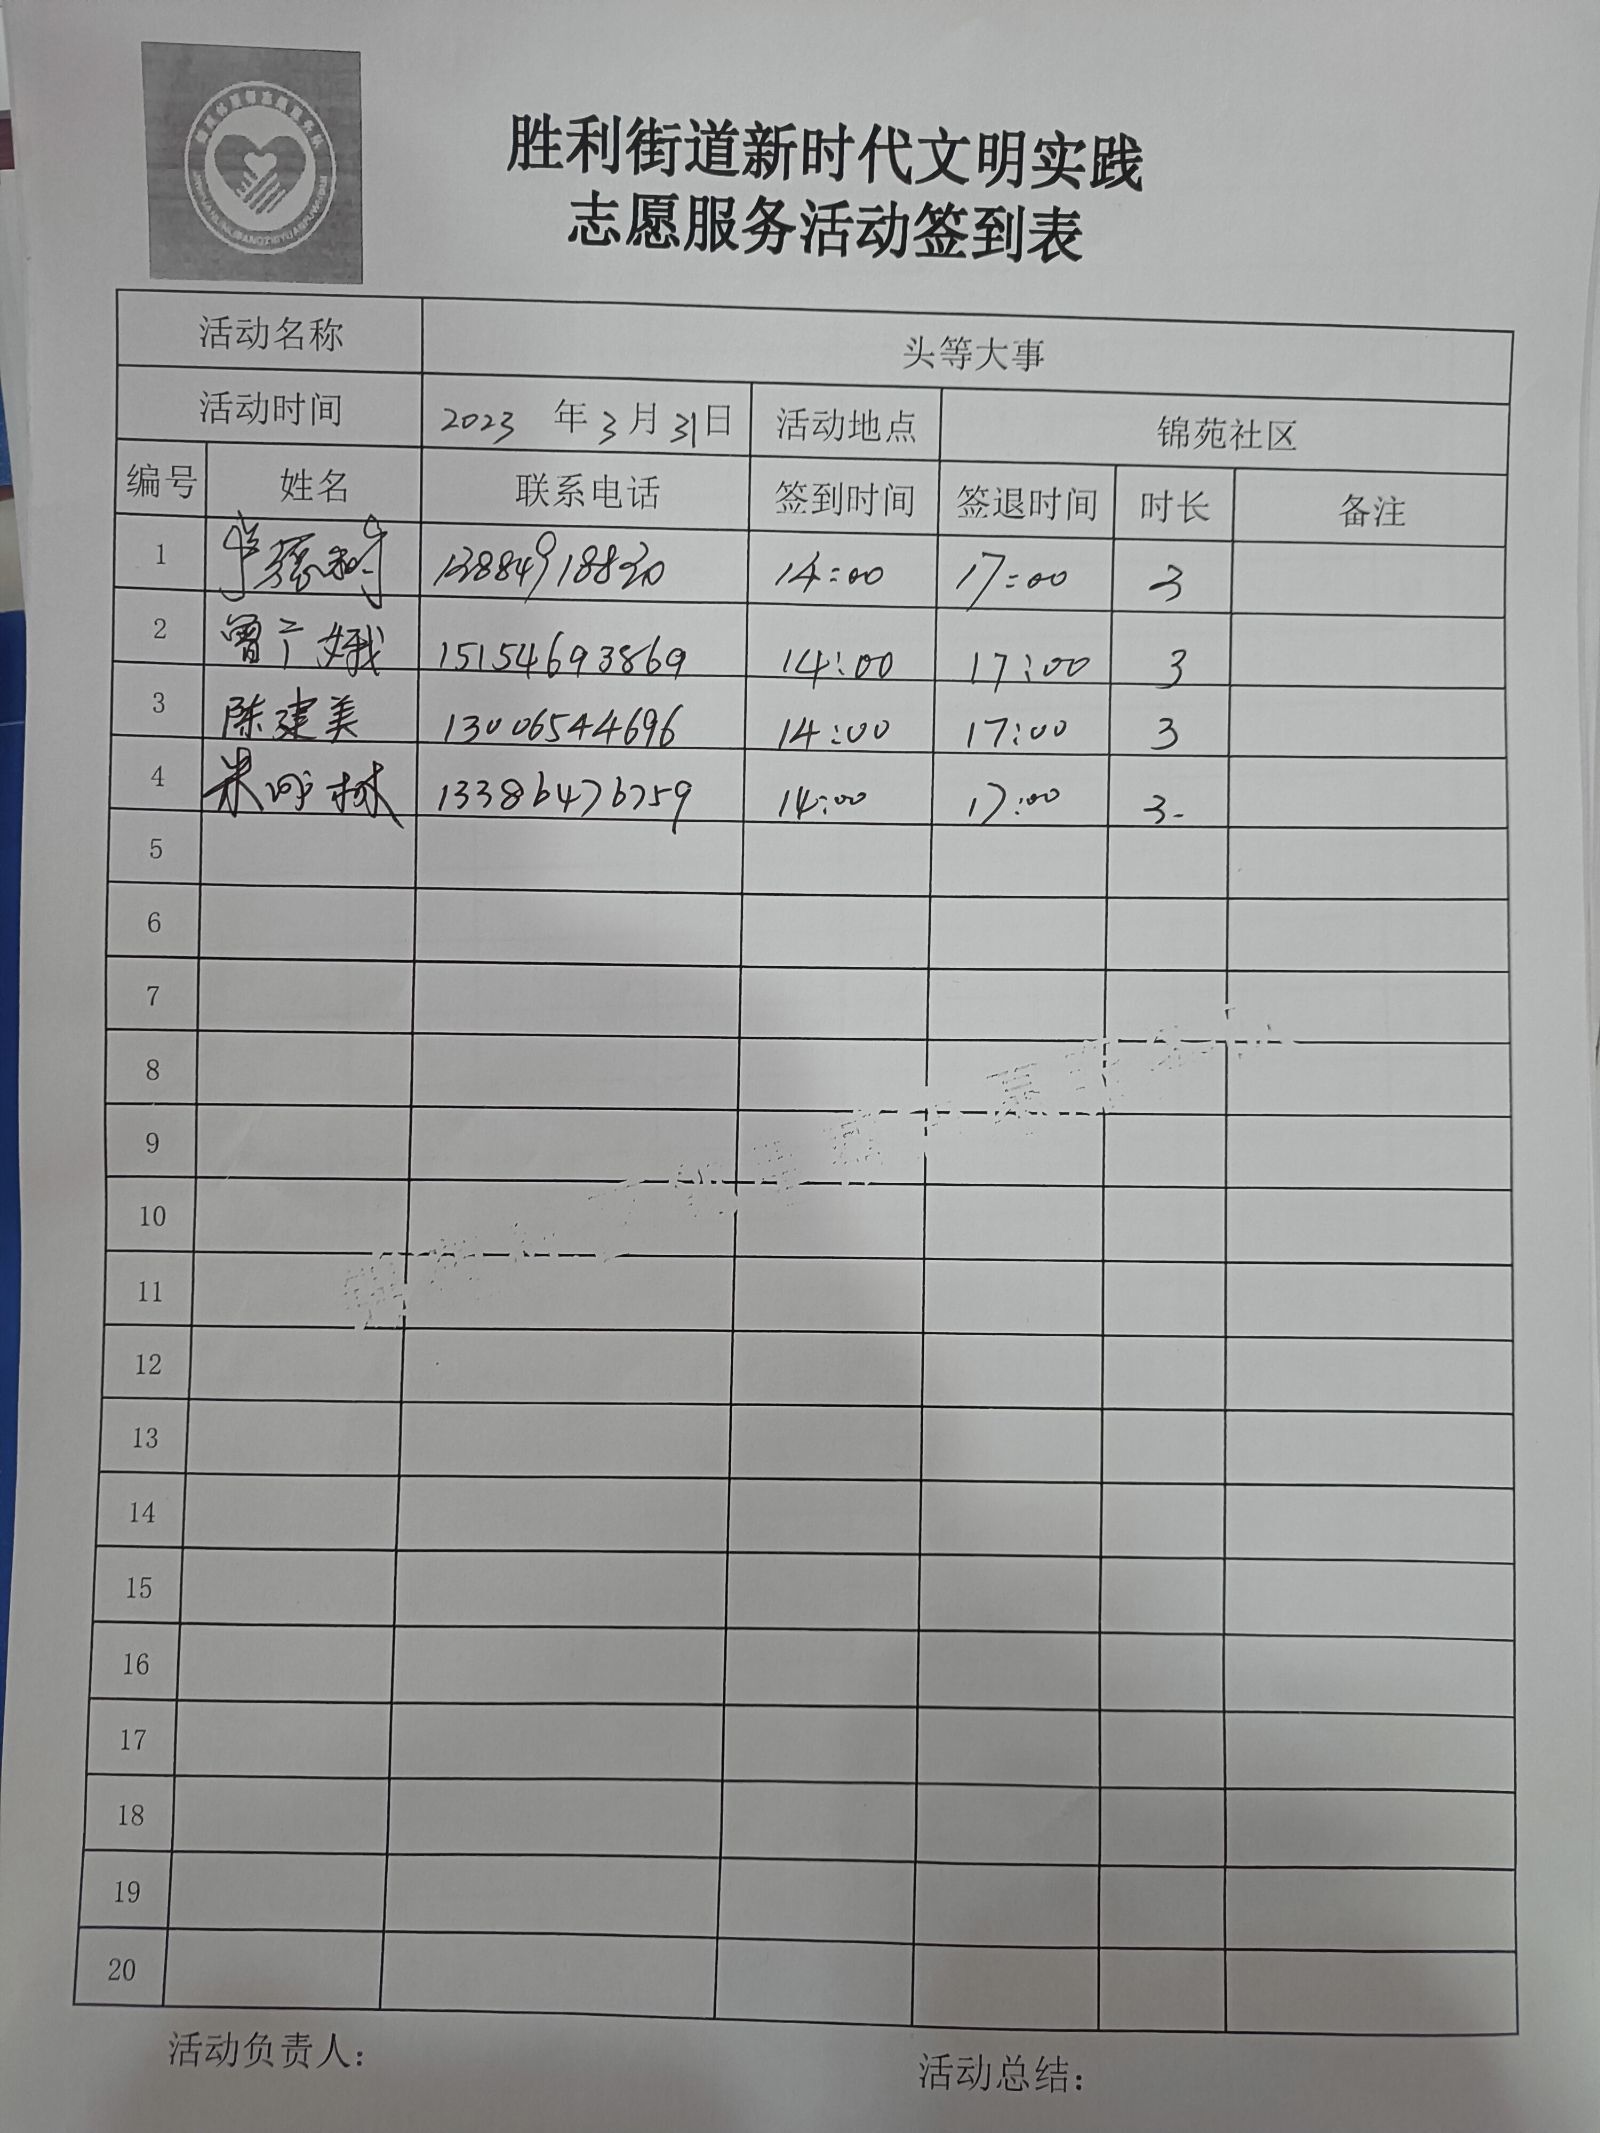 胜利街道新时代文明实践
志愿服务活动签到表
活动名称 头等大事
活动时间 2023 年 3 月 31 日 活动地点 锦苑社区
编号 姓名 联系电话 签到时间 签退时间 时长 备注
1 13884918820 14:00 17:00 3
2 曾广娥 15154693869 14:00 17:00 3
3 陈建美 13006544696 14:00 17:00 3
4 13386476759 14:00 17:00 3
5
6
7
8
9
10
11
12
13
14
15
16
17
18
19
20
活动负责人： 活动总结：